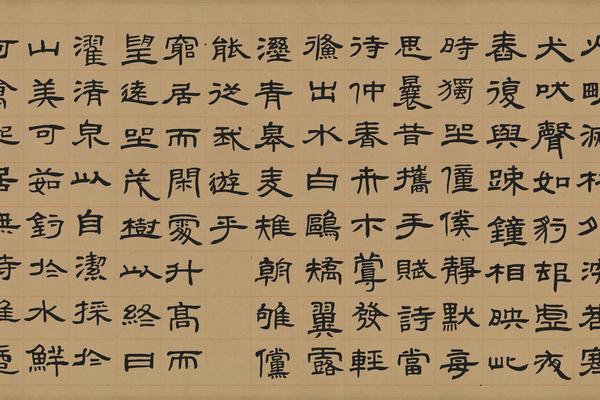 火明滅林外深巷寒
犬吠聲如豹邨虛夜
舂復與疎鐘相映此
時獨坐僮僕靜默每
思曩昔攜手賦詩當
待仲春卉木蔓發輕
鯈出水白鷗矯翼露
溼青皋麦雉朝雊儻
能從我遊乎
窮居而閑處升高而
望遠坐茂樹以終日
濯清泉以自潔採於
山美可茹釣於水鮮
可食起居無時惟適